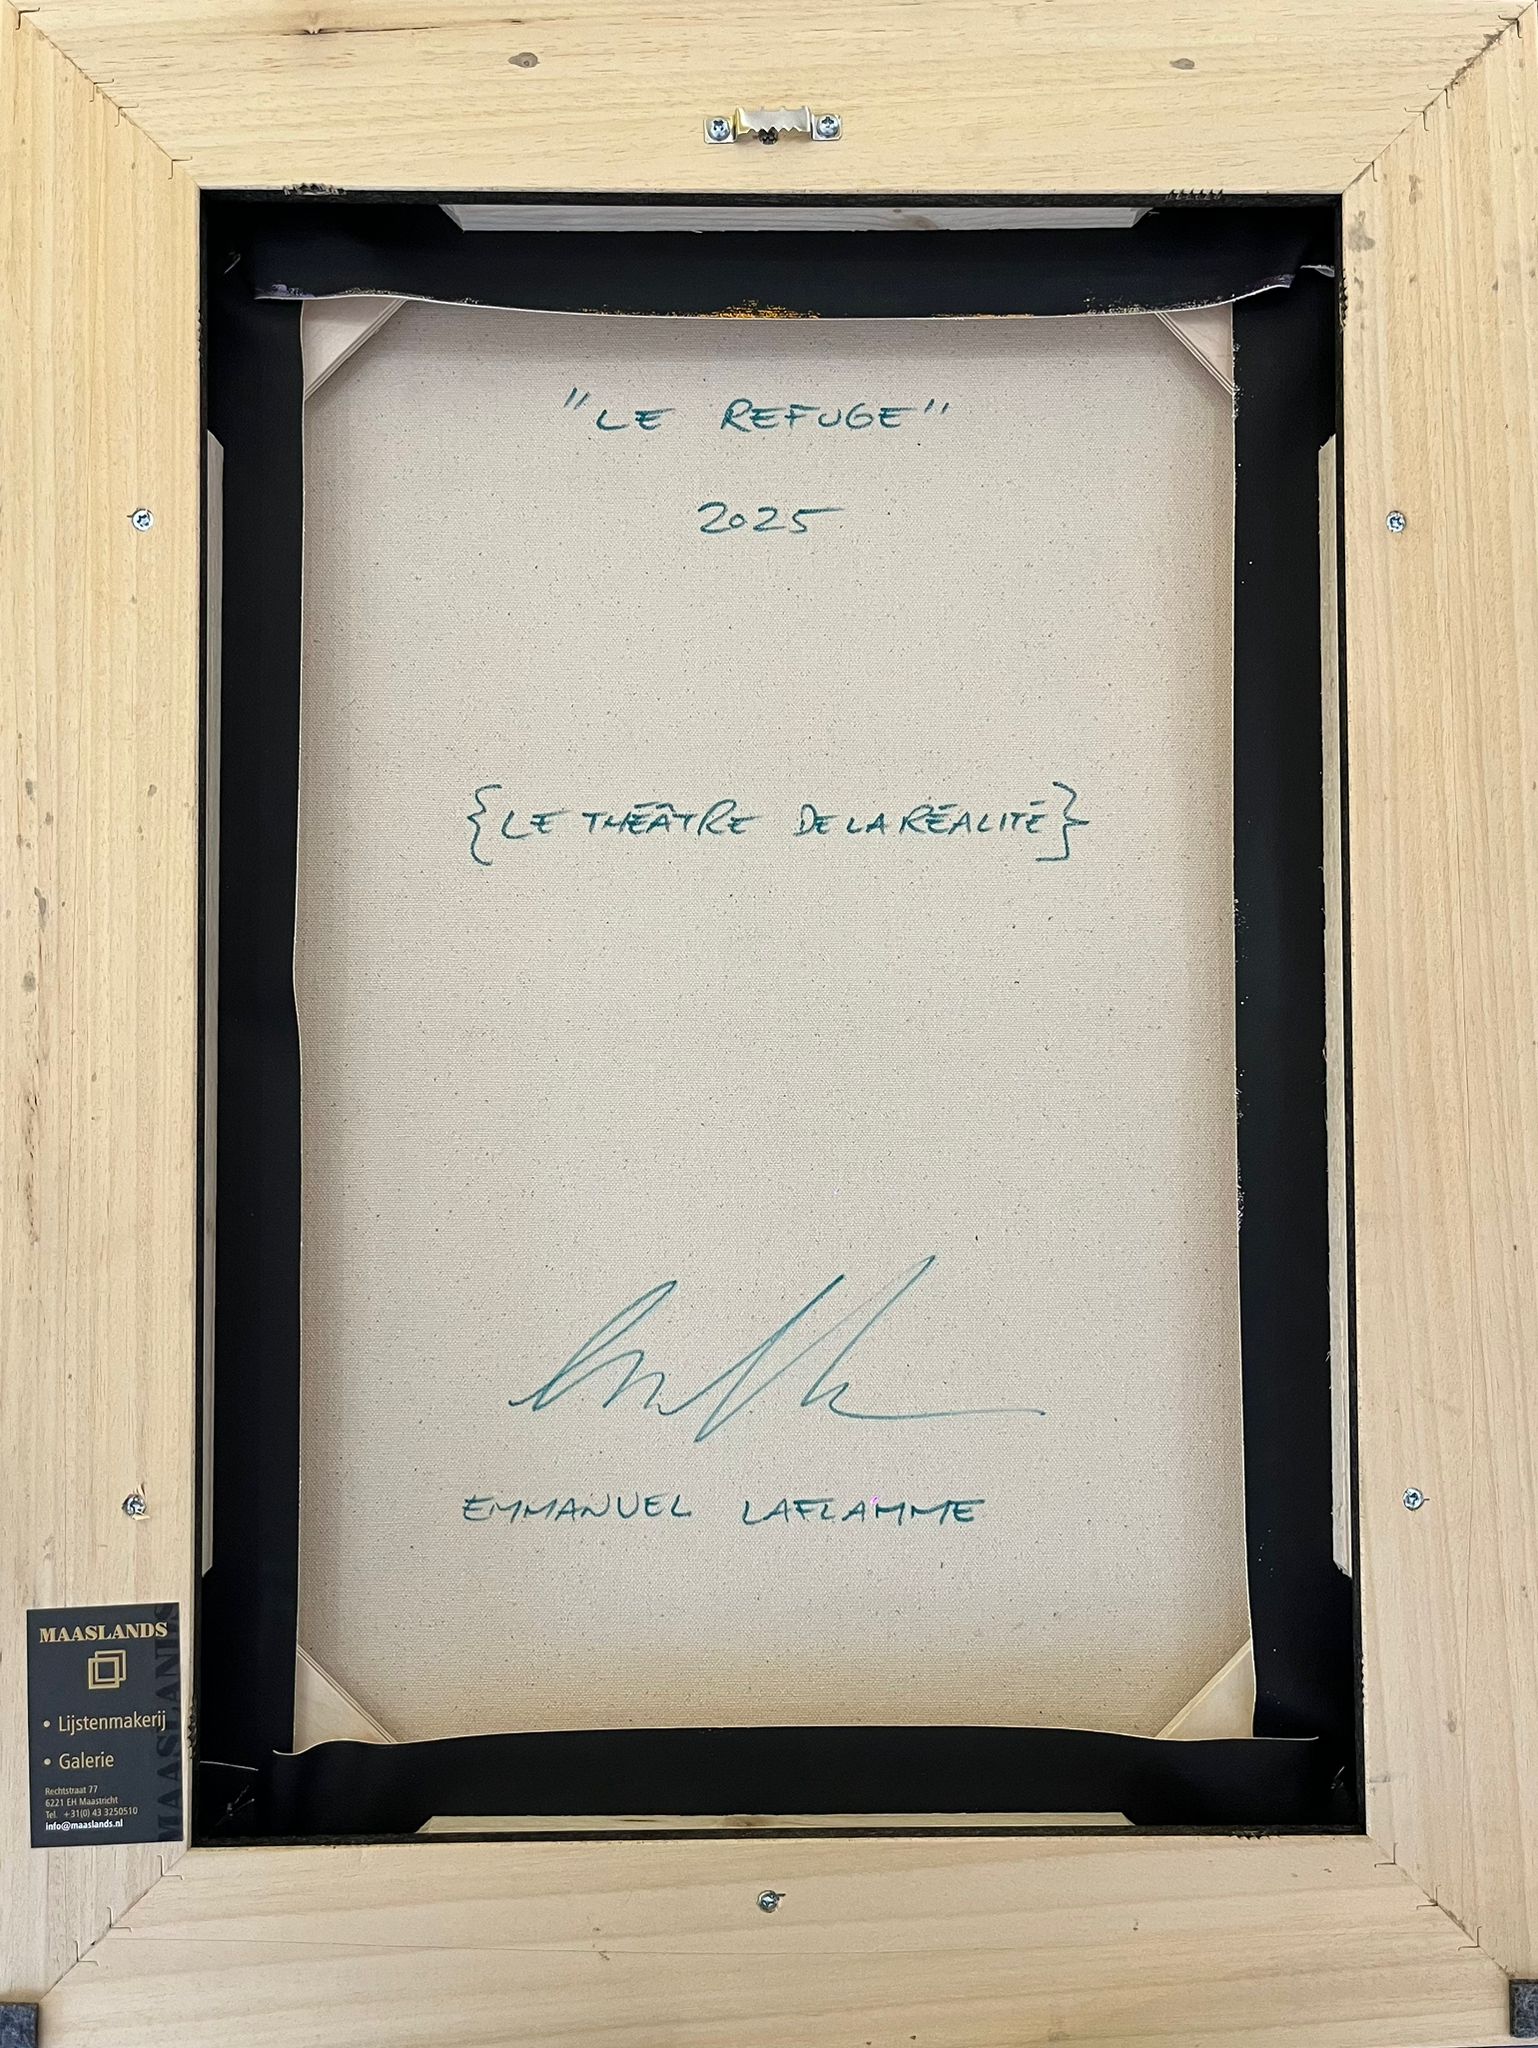 "LE REFUGE"
2025
{LE THÉÂTRE DE LA RÉALITÉ}
EMMANUEL LAFLAMME
MAASLANDS
MAASLANDS
• Lijstenmakerij
• Galerie
Rechtstraat 77
6221 EH Maastricht
Tel. +31(0) 43 3250510
info@maaslands.nl